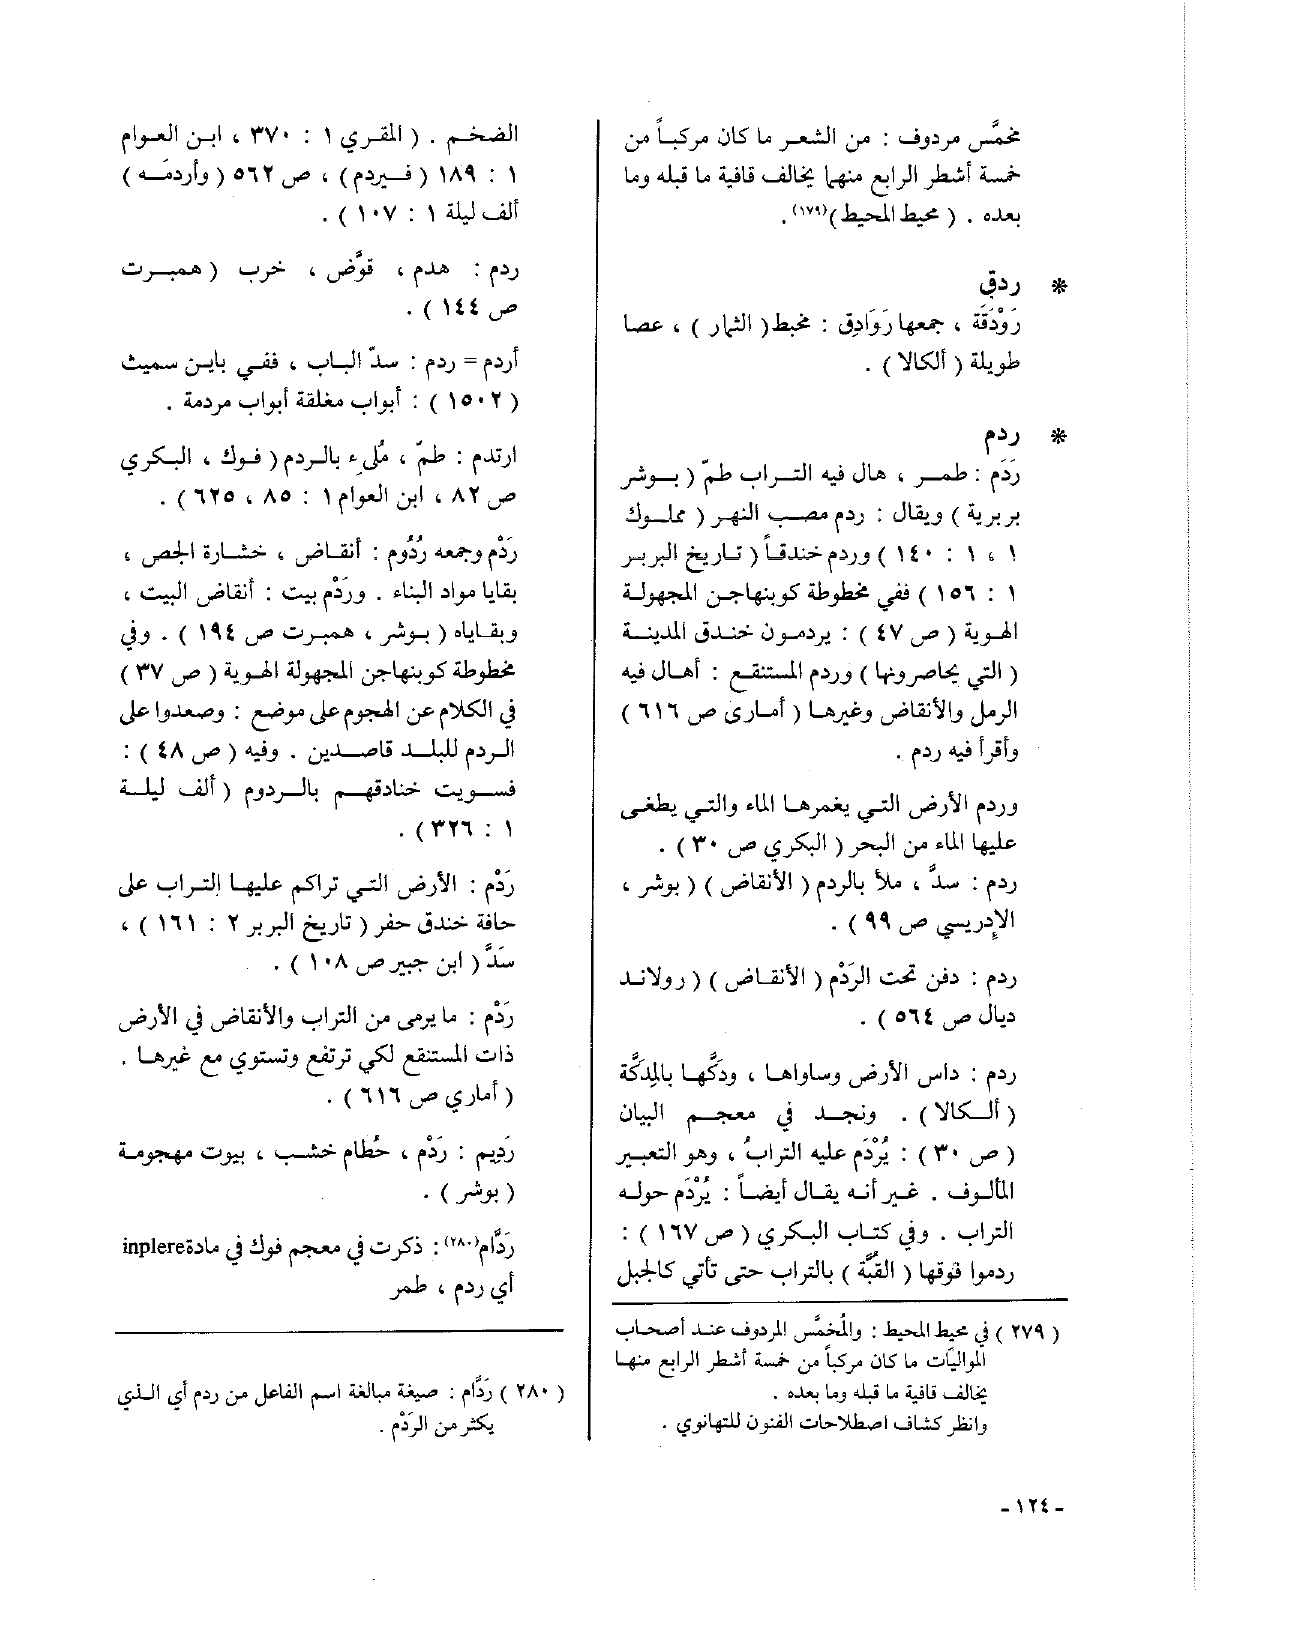 مخمَّس مردوف : من الشعر ما كان مركباً من
خمسة أشطر الرابع منها يخالف قافية ما قبله وما
بعده . ( محيط المحيط )(١٧٩) .
* ردق
رَوْدَقَة ، جمعها رَوَادِق : مخبط ( الثمار ) ، عصا
طويلة ( ألكالا ) .
* ردم
رَدَم : طمر ، هال فيه التراب طمّ ( بوشر
بربرية ) ويقال : ردم مصب النهر ( مملوك
١ ، ١ : ١٤٠ ) وردم خندقاً ( تاريخ البربر
١ : ١٥٦ ) ففي مخطوطة كوبنهاجن المجهولة
الهوية ( ص ٤٧ ) : يردمون خندق المدينة
( التي يحاصرونها ) وردم المستنقع : أهال فيه
الرمل والأنقاض وغيرها ( أماري ص ٦١٦ )
وأقرأ فيه ردم .
وردم الأرض التي يغمرها الماء والتي يطغى
عليها الماء من البحر ( البكري ص ٣٠ ) .
ردم : سدَّ ، ملأ بالردم ( الأنقاض ) ( بوشر ،
الإدريسي ص ٩٩ ) .
ردم : دفن تحت الرَدْم ( الأنقاض ) ( رولاند
ديال ص ٥٦٤ ) .
ردم : داس الأرض وساواها ، ودكَّها بالمِدَكَّة
( ألكالا ) . ونجد في معجم البيان
( ص ٣٠ ) : يُرْدَم عليه الترابُ ، وهو التعبير
المألوف . غير أنه يقال أيضاً : يُرْدَم حوله
التراب . وفي كتاب البكري ( ص ١٦٧ ) :
ردموا فوقها ( القبَّة ) بالتراب حتى تأتي كالجبل
( ٢٧٩ ) في محيط المحيط : والمُخمَّس المردوف عند أصحاب
المواليَّات ما كان مركباً من خمسة أشطر الرابع منها
يخالف قافية ما قبله وما بعده .
وانظر كشاف اصطلاحات الفنون للتهانوي .
الضخم . ( المقري ١ : ٣٧٠ ، ابن العوام
١ : ١٨٩ ( فيردم ) ، ص ٥٦٢ ( وأردمَه )
ألف ليلة ١ : ١٠٧ ) .
ردم : هدم ، قوَّض ، خرب ( همبرت
ص ١٤٤ ) .
أردم = ردم : سدّ الباب ، ففي باين سميث
( ١٥٠٢ ) : أبواب مغلقة أبواب مردمة .
ارتدم : طمّ ، مُلِيء بالردم ( فوك ، البكري
ص ٨٢ ، ابن العوام ١ : ٨٥ ، ٦٢٥ ) .
رَدْم وجمعه رُدُوم : أنقاض ، خشارة الجص ،
بقايا مواد البناء . وردْم بيت : أنقاض البيت ،
وبقاياه ( بوشر ، همبرت ص ١٩٤ ) . وفي
مخطوطة كوبنهاجن المجهولة الهوية ( ص ٣٧ )
في الكلام عن الهجوم على موضع : وصعدوا على
الردم للبلد قاصدين . وفيه ( ص ٤٨ ) :
فسويت خنادقهم بالردوم ( ألف ليلة
١ : ٣٢٦ ) .
رَدْم : الأرض التي تراكم عليها التراب على
حافة خندق حفر ( تاريخ البربر ٢ : ١٦١ ) ،
سَدَّ ( ابن جبير ص ١٠٨ ) .
رَدْم : ما يرمى من التراب والأنقاض في الأرض
ذات المستنقع لكي ترتفع وتستوي مع غيرها .
( أماري ص ٦١٦ ) .
رَدِيم : رَدْم ، حُطام خشب ، بيوت مهجومة
( بوشر ) .
رَدَّام(٢٨٠) : ذكرت في معجم فوك في مادة inplere
أي ردم ، طمر
( ٢٨٠ ) رَدَّام : صيغة مبالغة اسم الفاعل من ردم أي الذي
يكثر من الرَدْم .
- ١٢٤ -